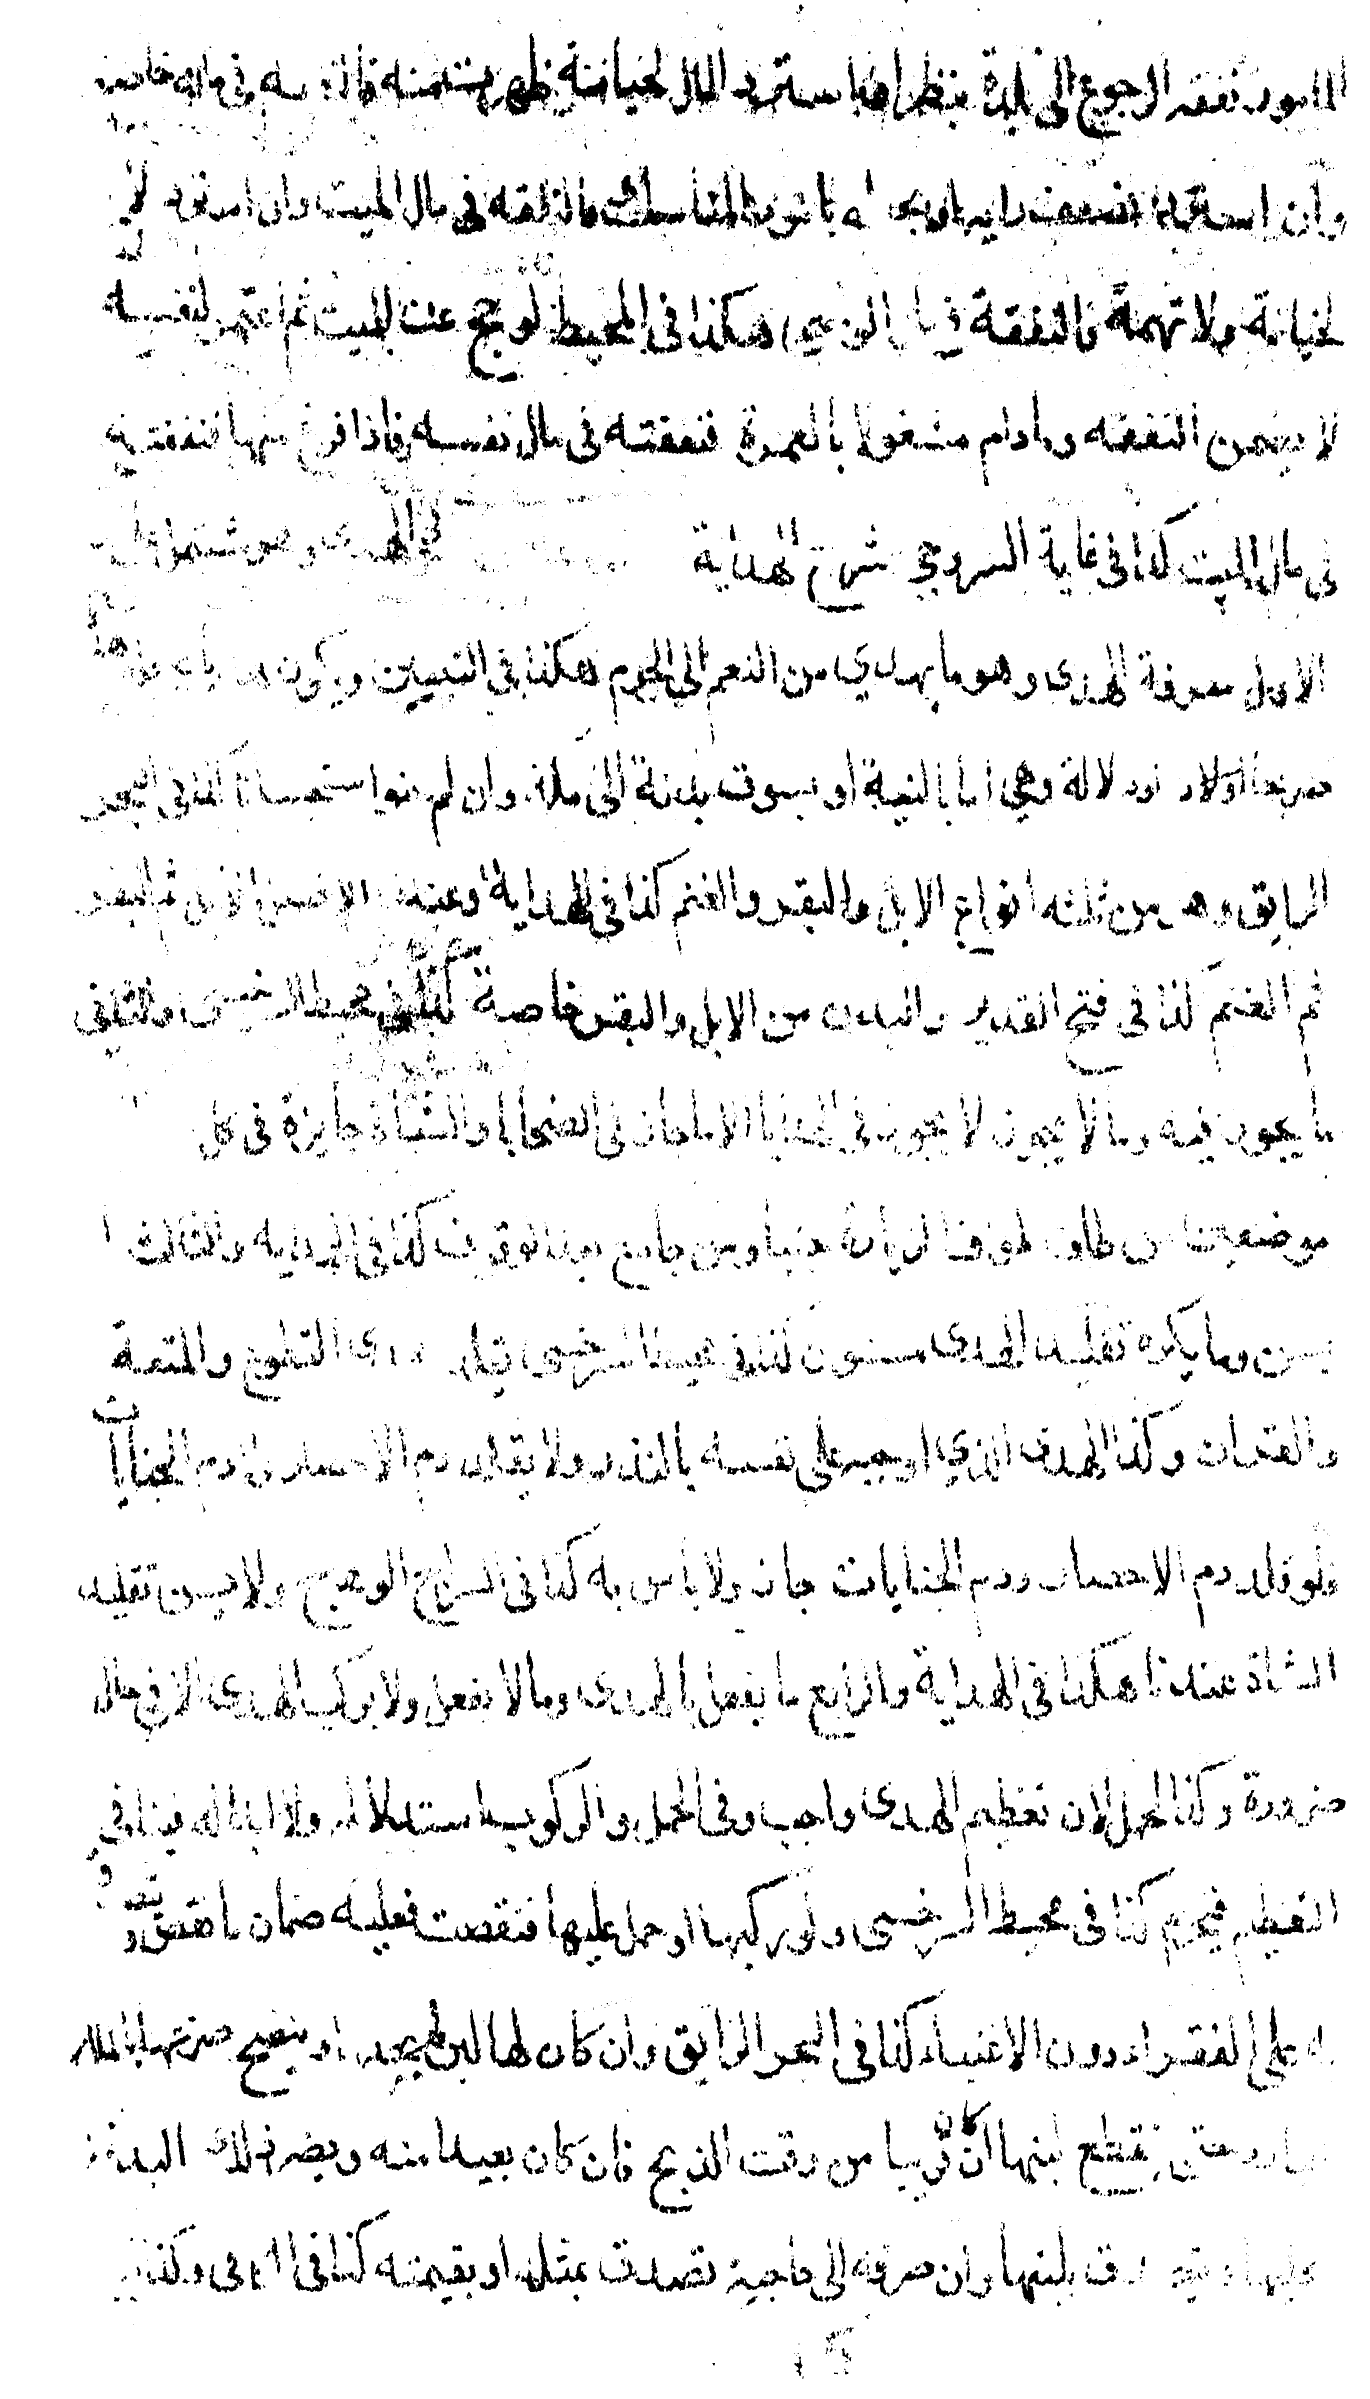 المامور نفقه الرجوع الى بلده ينظر استرد المال لخيانة ظهرت منه فالنفقة في ماله خاصة
وان استردها لضعف راى بامور المناسك فالنفقة فى مال الميت وان استرده لا
لخيانة ولا تهمة فالنفقة في مال الوصي هكذا فى المحيط لو حج عن الميت ثم اعتمر لنفسه
لا يضمن النفقه وما دام مشغولا بالعمرة فنفقته فى مال نفسه فاذا فرغ منها فنفقته
فى مال الميت كذا فى غاية السروجى شرح الهداية فى الهدى وهو يشتمل على
الاول معرفة الهدى وهو ما يهدى من النعم الى الحرم هكذا فى التبيين ويكون هديا
صريحا او دلالة وهى اما بالنية او بسوق بدنة الى مكة وان لم ينو استحسانا كذا فى البحر
الرايق وهو من ثلثه انواع الابل والبقر والغنم كذا فى الهداية وعندنا الافضل الابل ثم البقر
ثم الغنم كذا فى فتح القدير والبدن من الابل والبقر خاصة كذا فى محيط السرخسى والثانى
ما يجوز فيه وما لا يجوز لا يجوز فى الهدايا الا ما جاز فى الضحايا والشاة جايزة فى كل
موضعين من طاف طواف الزيارة جنبا ومن جامع بعد الوقوف كذا فى الهدايه والثالث
يسن وما يكره تقليد الهدى مسنون كذا فى محيط السرخسى يقلد هدى التطوع والمتعة
والقران وكذا الهدى الذي اوجبه على نفسه بالنذر ولا يقلد دم الاحصار ولا دم الجنايات
ولو قلد دم الاحصار ودم الجنايات جاز ولا باس به كذا فى السراج الوهاج ولا يسن تقليد
الشاة عندنا هكذا فى الهداية والرابع ما يفعل بالهدى وما لا يفعل ولا يركب الهدى الا في حال
ضرورة وكذا الحمل لان تعظيم الهدى واجب وفى الحمل والركوب استذلاله وابتذاله فينافى
التعظيم فيحرم كذا فى محيط السرخسى ولو ركبها او حمل عليها فنقصت فعليه ضمان ما نقص
به على الفقراء دون الاغنياء كذا فى البحر الرايق وان كان لها لبن لم يحلبه او ينضح ضرعها بالماء
البارد حتى ينقطع لبنها ان كان قريبا من وقت الذبح فان كان بعيدا منه ويضر ذلك البدنة
يحلبها ويتصدق بلبنها وان صرفه الى حاجته تصدق بمثله او بقيمته كذا فى الكافى وكذا